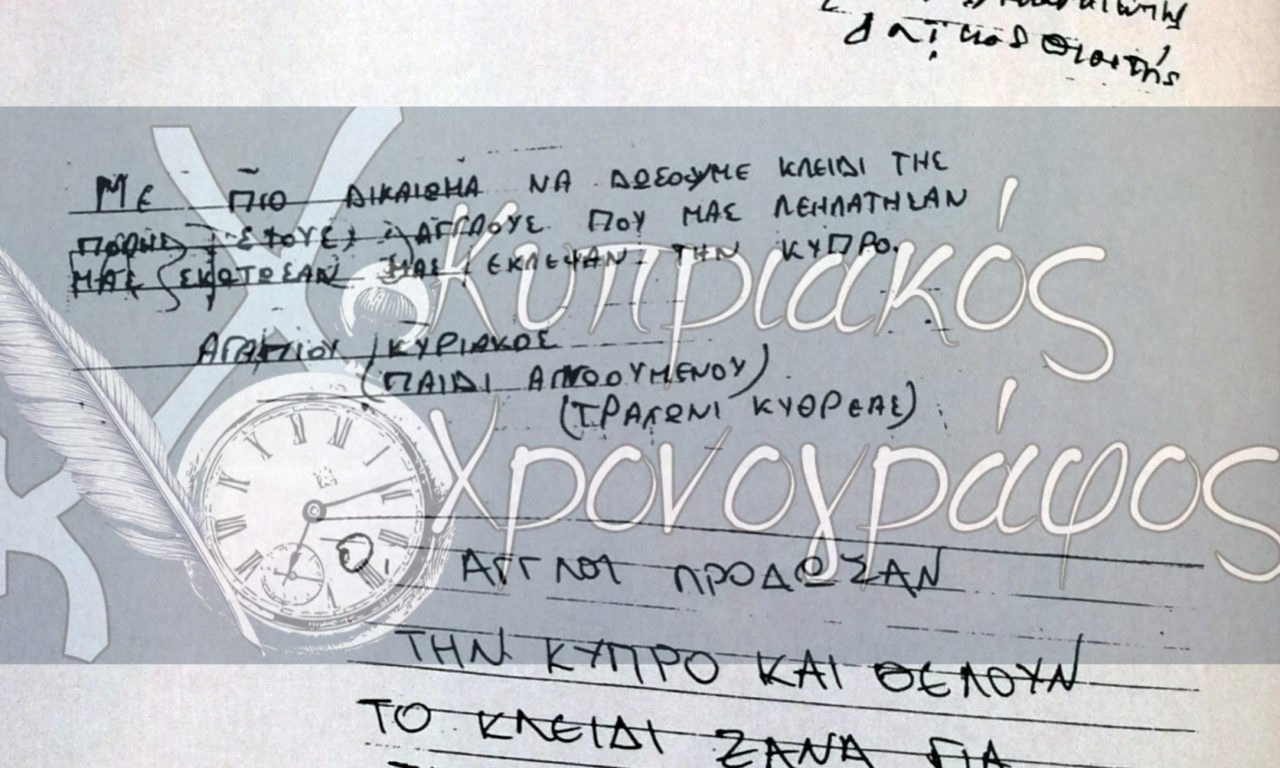 ΜΕ ΠΙΟ ΔΙΚΑΙΩΜΑ ΝΑ ΔΩΣΟΥΜΕ ΚΛΕΙΔΙ ΤΗΣ
ΣΤΟΥΣ ΑΓΓΛΟΥΣ ΠΟΥ ΜΑΣ ΛΕΗΛΑΤΗΣΑΝ
ΜΑΣ ΣΚΩΤΩΣΑΝ ΜΑΣ ΕΚΛΕΨΑΝ ΤΗΝ ΚΥΠΡΟ.
Κυπριακός
ΑΓΑΠΙΟΥ ΚΥΡΙΑΚΟΣ
(ΠΑΙΔΙ ΑΓΝΟΟΥΜΕΝΟΥ)
(ΤΡΑΧΩΝΙ ΚΥΘΡΕΑΣ)
χρονογράφος
Οι ΑΓΓΛΟΙ ΠΡΟΔΩΣΑΝ
ΤΗΝ ΚΥΠΡΟ ΚΑΙ ΘΕΛΟΥΝ
ΤΟ ΚΛΕΙΔΙ ΞΑΝΑ ΓΙΑ